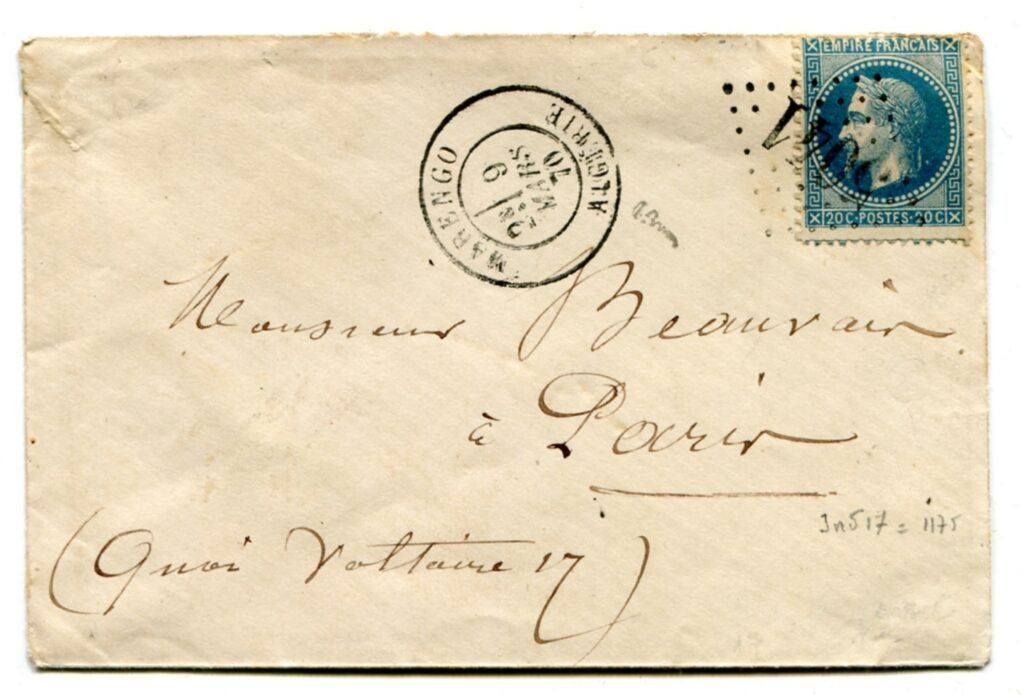 EMPIRE FRANÇAIS
20 C · POSTES · 20 C
MARENGO ALGERIE
9
MARS
70
Monsieur Beauvais
à Paris
(Quai Voltaire 17)
In 517 = 1175